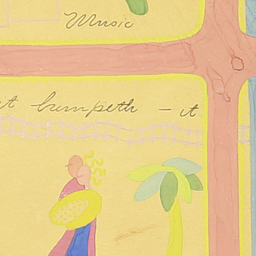 Music
it bumpeth - it